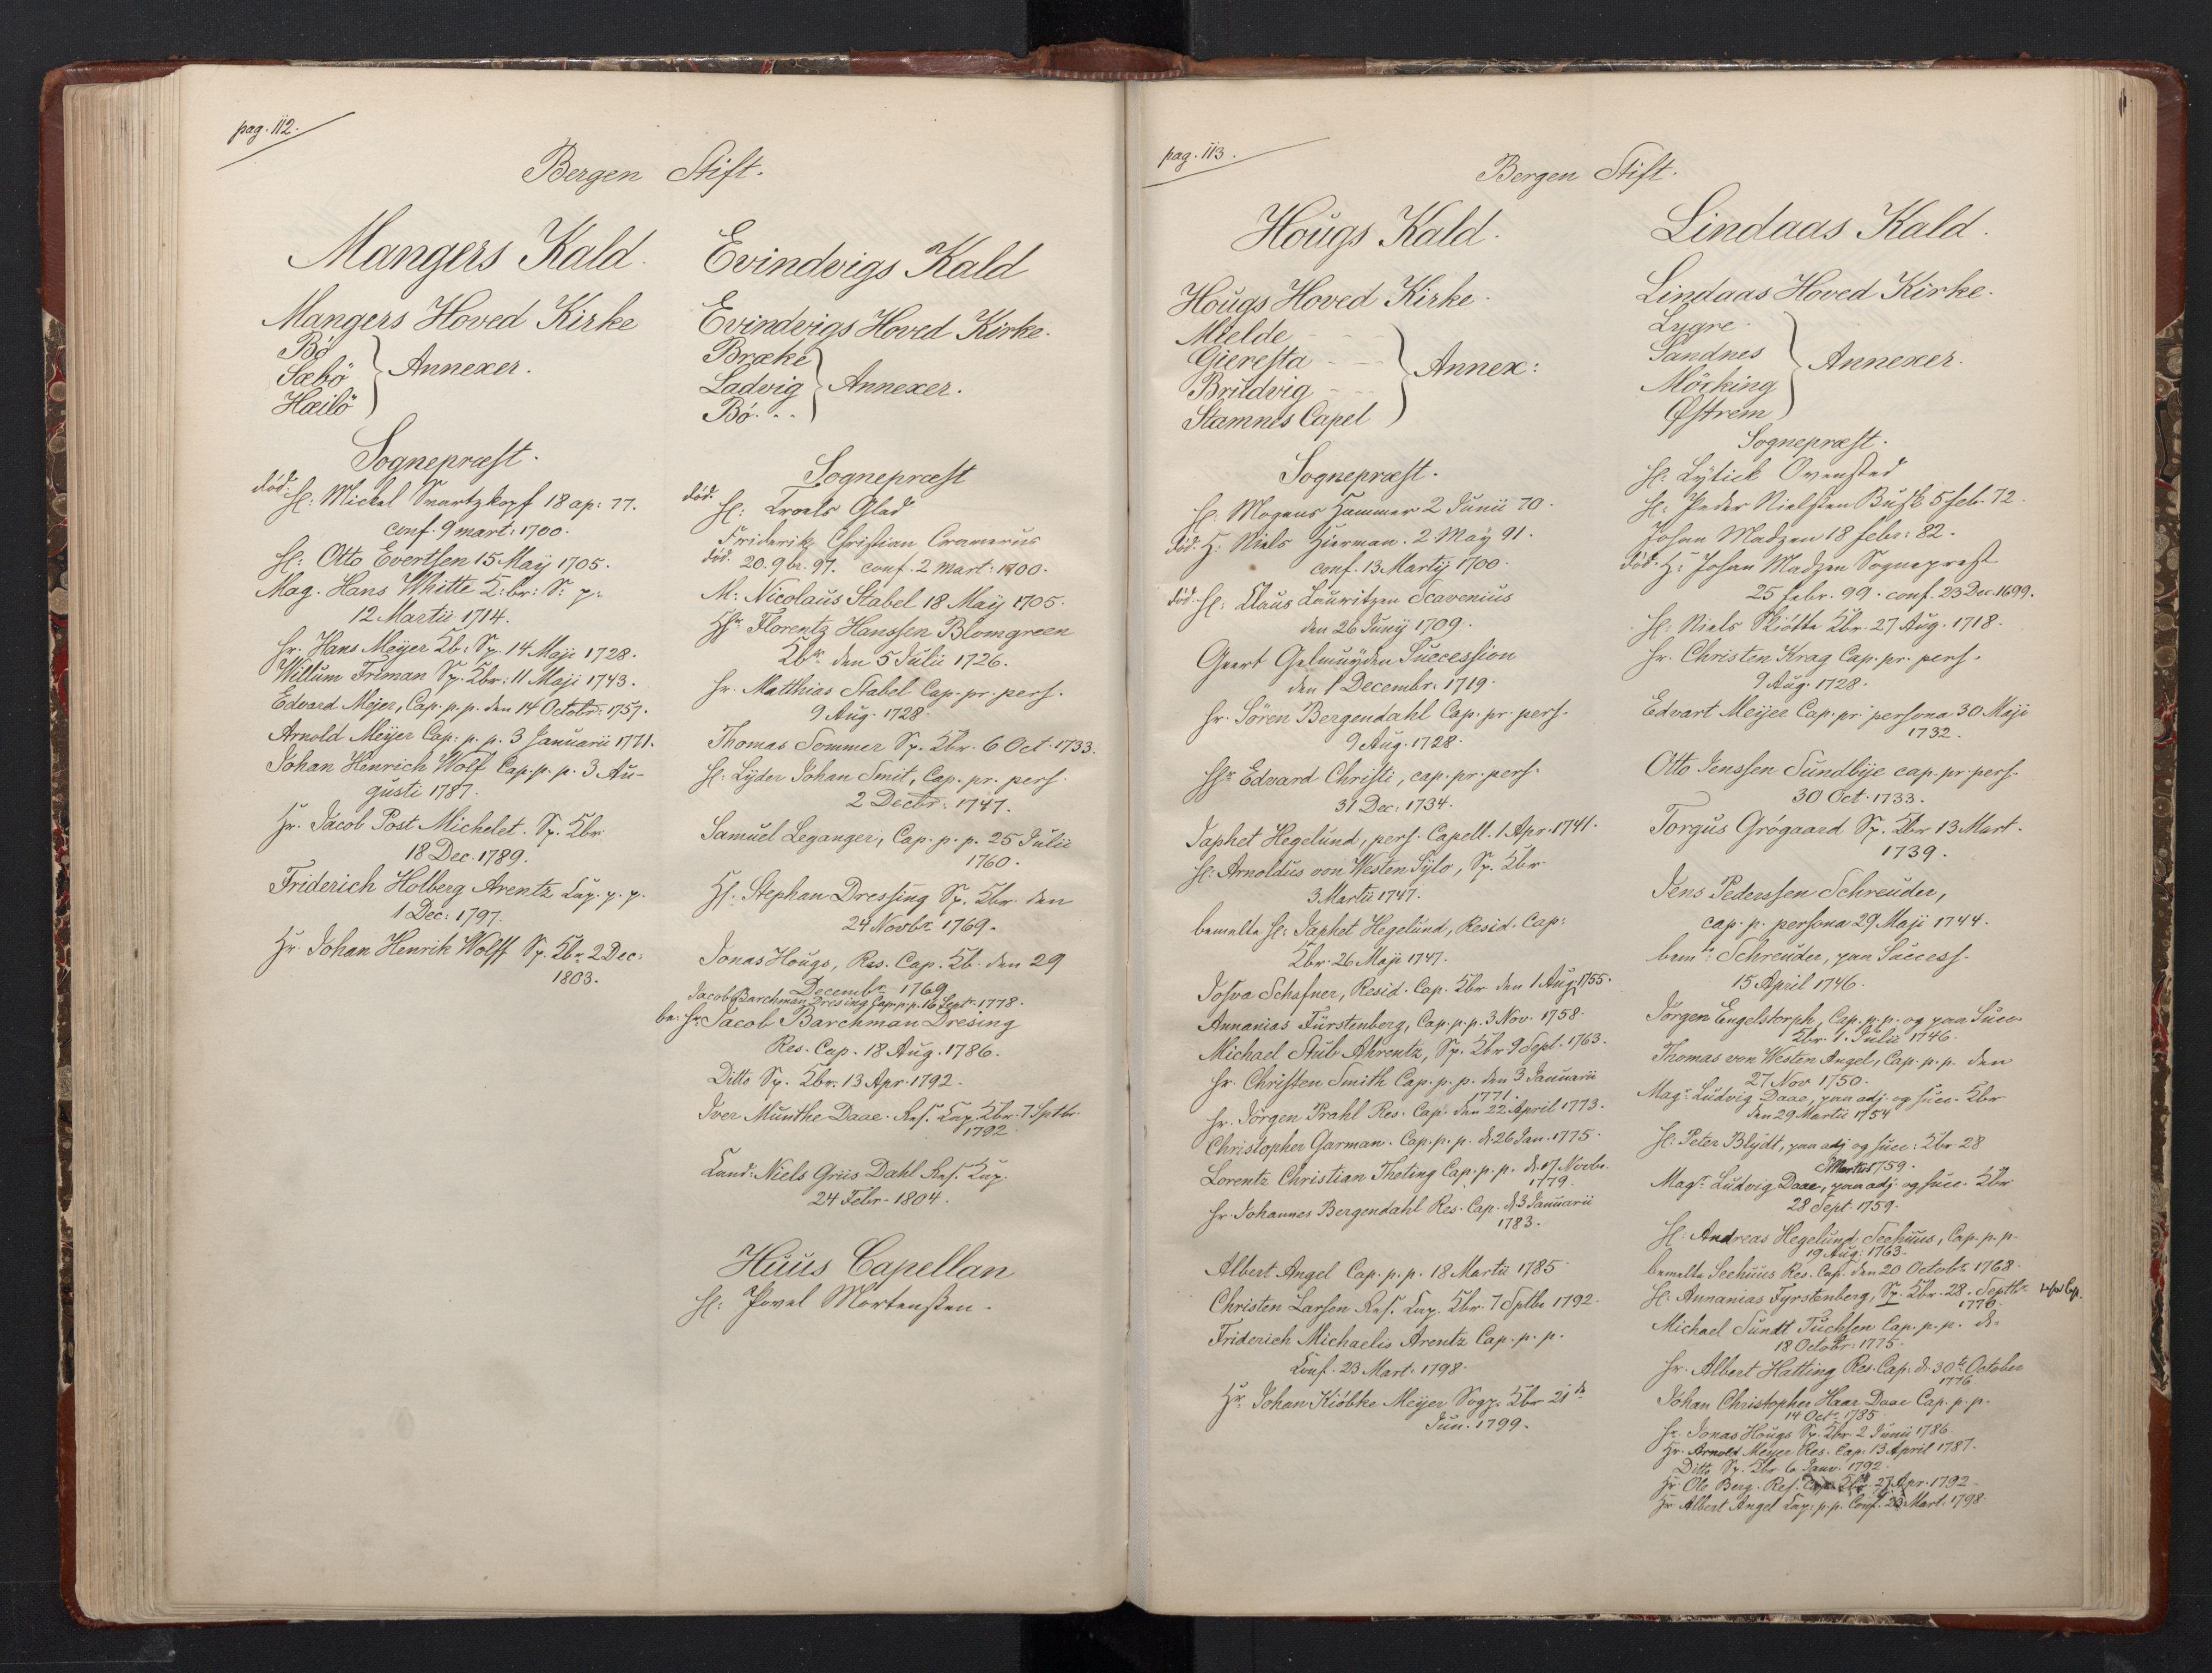 pag. 112.
Bergen Stift.
Mangers Kald.
Mangers Hoved Kirke
Bö
Sæbö
Hæilö
Annexer.
Sognepræst.
död. H: Mickel Svartzkopf 18 ap: 77.
conf. 9 mart: 1700.
H: Otto Evertsen 15 Maÿ 1705.
Mag. Hans Whitte K: br: S: p:
12 Martii 1714.
Hr. Hans Meÿer Kb: Sp. 14 Maji 1728.
Willum Friman Sp. Kbr: 11 Maji 1743.
Edvard Mejer, Cap. p. p. den 14 Octobr: 1757.
Arnold Meÿer Cap: p. p. 3 Januarii 1771.
Johan Henrich Wolf Cap. p. p. 3 Au-
gusti 1787.
Hr. Jacob Post Michelet. Sp. Kbr.
18 Dec. 1789.
Friderich Holberg Arentz Cap. p. p.
1 Dec: 1797.
Hr. Johan Henrik Wolff Sp. Kbr. 2 Dec:
1803.
Evindvigs Kald
Evindvigs Hoved Kirke.
Brække
Ladvig
Bö...
Annexer.
Sognepræst
död. H: Troels Glad
Friderik Christian Cramerus
död. 20. 9br. 97. conf. 2 mart: 1700.
M: Nicolaus Stabel 18 Maÿ 1705.
Hr. Florentz Hanssen Blomgreen
Kbr. den 5 Julii 1726.
Hr. Matthias Stabel Cap. pr. pers.
9 Aug. 1728.
Thomas Sommer Sp. Kbr. 6 Oct. 1733.
H: Lÿder Johan Smit, Cap. pr. pers.
2 Decbr: 1747.
Samuel Leganger, Cap. p. p. 25 Julii
1760.
Hr. Stephan Dressing Sp. Kbr. den
24 Novbr. 1769.
Jonas Hougs, Res. Cap. Kb. den 29
Decembr. 1769
Jacob Barchman Dresing Cap. p. p. 16 Sept. 1778.
be: Hr. Jacob Barchman Dresing
Res. Cap. 18 Aug. 1786.
Ditto Sp. Kbr. 13 Apr. 1792.
Iver Munthe Daae. Res. Cap. Kbr. 7 Sptbr.
1792.
Cand: Niels Griis Dahl Res. Cap.
24 Febr. 1804.
Huus Capellan
H: Povel Mortensen.
pag. 113.
Bergen Stift.
Hougs Kald.
Hougs Hoved Kirke.
Mielde
Gieresta
Brudvig
Stamnes Capel
Annex:
Sognepræst.
H: Mogens Hammer 2 Junii 70.
död. H: Niels Hierman. 2 Maÿ 91.
conf. 13 Martij 1700.
död. H: Claus Lauritzen Scavenius
den 26 Junij 1709.
Geert Gelmuÿden Succession
den 1 Decembr. 1719.
Hr. Sören Bergendahl Cap. pr. pers.
9 Aug. 1728.
Hr. Edvard Christi, cap. pr. pers.
31 Dec: 1734.
Japhet Hegelund, pers. Capell. 1 Apr. 1741.
H: Arnoldus von Westen Sylo, Sp. Kbr.
3 Martii 1747.
bemelte H: Japhet Hegelund, Resid. Cap:
Kbr. 26 Maji 1747.
Josva Schafner, Resid. Cap. Kbr den 1 Aug. 1755.
Annanias Fürstenberg, Cap. p. p. 3 Nov. 1758.
Michael Stub Ahrentz, Sp. Kbr. 9 Sept. 1763.
Hr. Christen Smith Cap. p. p. den 3 Januarii
1771.
Hr. Jörgen Prahl Res. Cap. den 22 April 1773.
Christopher Garman. Cap. p. p. d. 26 Jan. 1775.
Lorentz Christian Theting Cap. p. p. d. 17 Novbr.
1779.
Hr. Johannes Bergendahl Res. Cap. d. 3 Januarii
1783.
Albert Angel Cap. p. p. 18 Martii 1785
Christen Larsen Res. Cap. Kbr. 7 Sptbr 1792.
Friderich Michaelis Arentz Cap. p. p.
Conf. 23 Mart. 1798.
Hr. Johan Kiöbke Meÿer Sogp. Kbr 21de
Jun. 1799.
Lindaas Kald.
Lindaas Hoved Kirke.
Lygre
Sandnes
Möcking
Østrem
Annexer.
Sognepræst.
H: Lÿtick Ovensted
H: Peder Nielssen Busk 5 feb. 72.
Johan Madzen 18 febr: 82.
död. H: Johan Madzen Sognepræst
25 febr. 99. conf. 23 Dec. 1699.
H: Niels Skiötte Kbr. 27 Aug. 1718.
Hr. Christen Krag Cap. pr. pers.
9 Aug. 1728.
Edvart Meijer Cap. pr. persona 30 Maji
1732.
Otto Jenssen Sundbÿe cap. pr. pers.
30 Oct. 1733.
Torgus Grögaard Sp. Kbr 13 Mart.
1739.
Jens Pederssen Schreuder,
cap. p. persona 29 Maji 1744.
bemte Schreuder, paa Success.
15 April 1746.
Jörgen Engelstorph, Cap. p. p. og paa Succ.
Kbr. 1. Julii 1746.
Thomas von Westen Angel, Cap. p. p. den
27 Nov 1750.
Magr. Ludvig Daae, paa adj. og succ. Kbr
den 29 Martii 1754
H: Peter Blÿdt, paa adj og succ: Kbr 28
Martii 1759.
Magr. Ludvig Daae, paa adj. og succ. Kbr
28 Sept. 1759.
H: Andreas Hegelund Seehuus, Cap. p. p.
19 Aug. 1763.
bemelte Seehuus Res. Cap. den 20 Octobr. 1768.
H: Annanias Fyrstenberg, Sp. Kbr. 28. Septbr.
1770.
Michael Sundt Tuchsen Cap. p. p. d.
18 Octobr. 1775.
Hr. Albert Hatting Res. Cap. d. 30te October
1776
Johan Christopher Haar Daae Cap. p. p.
14 Oct. 1785
Hr. Jonas Hougs Sp. Kbr 2 Junii 1786
Hr. Arnold Meyer Res. Cap. 13 April 1787.
Ditto Sp. Kbr 6 Janv. 1792.
Hr Ole Berg. Res. Cap. Kbr 27 Apr. 1792
Hr Albert Angel Cap. p. p. Conf. 23 Mart. 1798.